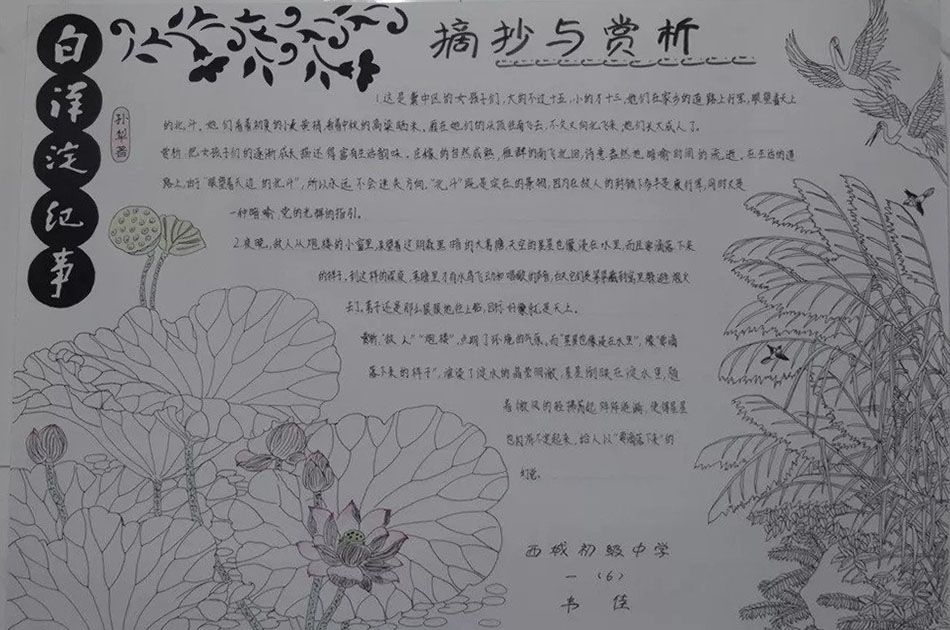 白洋淀纪事
孙犁著
摘抄与赏析
1.这是冀中区的女孩子们,大的不过十五,小的才十三,他们在家乡的道路上行军,眼望着天上
的北斗。她们看着初夏的小麦黄梢,看着中秋的高粱晒米。雁在她们的头顶往南飞去,不久又向北飞来,她们长大成人了。
赏析:把女孩子们的逐渐成长描述得富有生活韵味。庄稼的自然成熟,雁群的南飞北回,诗意盎然地暗喻时间的流逝。在生活的道
路上,由于"眼望着天边的北斗",所以永远不会迷失方向。"北斗"既是实在的景物,因为在敌人的
一种暗喻,党的光辉的指引。
2.夜晚,敌人从炮楼的小窗里,呆望着这阴森黑暗的大苇塘,天空的星星也像浸在水里,而且要滴落下来
的样子,到这样的深夜,苇塘里才有水鸟飞动和唱歌的声音,白天它们是紧紧藏到窝里躲避炮火
去了,苇子还是那么狠狠地往上钻,目标好像就是天上。
赏析:"敌人""炮楼",点明了环境的气氛。而"星星也像浸在水里","像要滴
落下来的样子",渲染了淀水的晶莹明澈,星星倒映在淀水里,随
着微风的轻拂荡起阵阵涟漪,使得星星
也闪烁不定起来,给人以"要滴落下来"的
幻觉。
西城初级中学
一(6)
韦佳